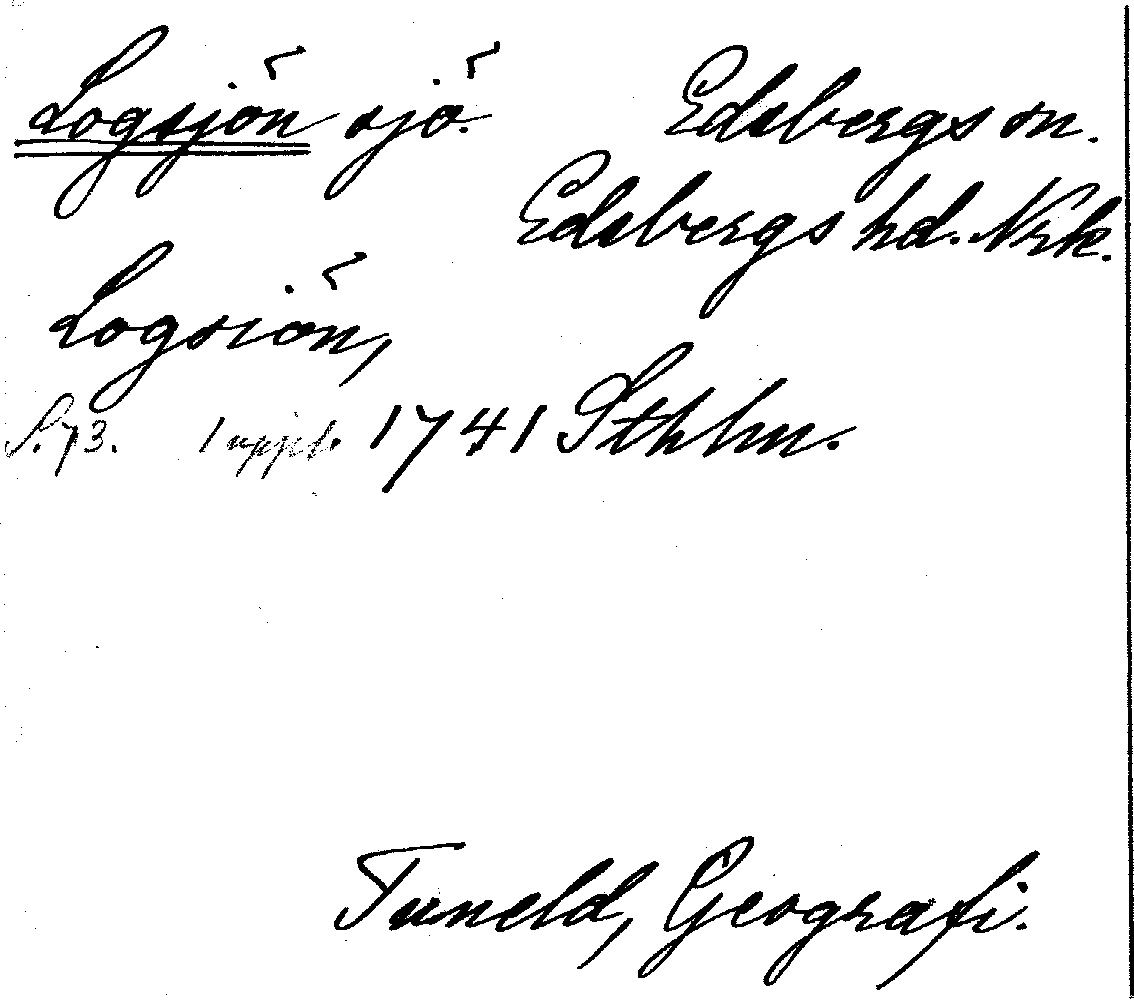 Logsjön sjö. Edsbergs sn.
Edsbergs hd. Nrk.
Logsiön,
S. 73. 1 uppl. 1741 Sthlm.
Tuneld, Geografi.